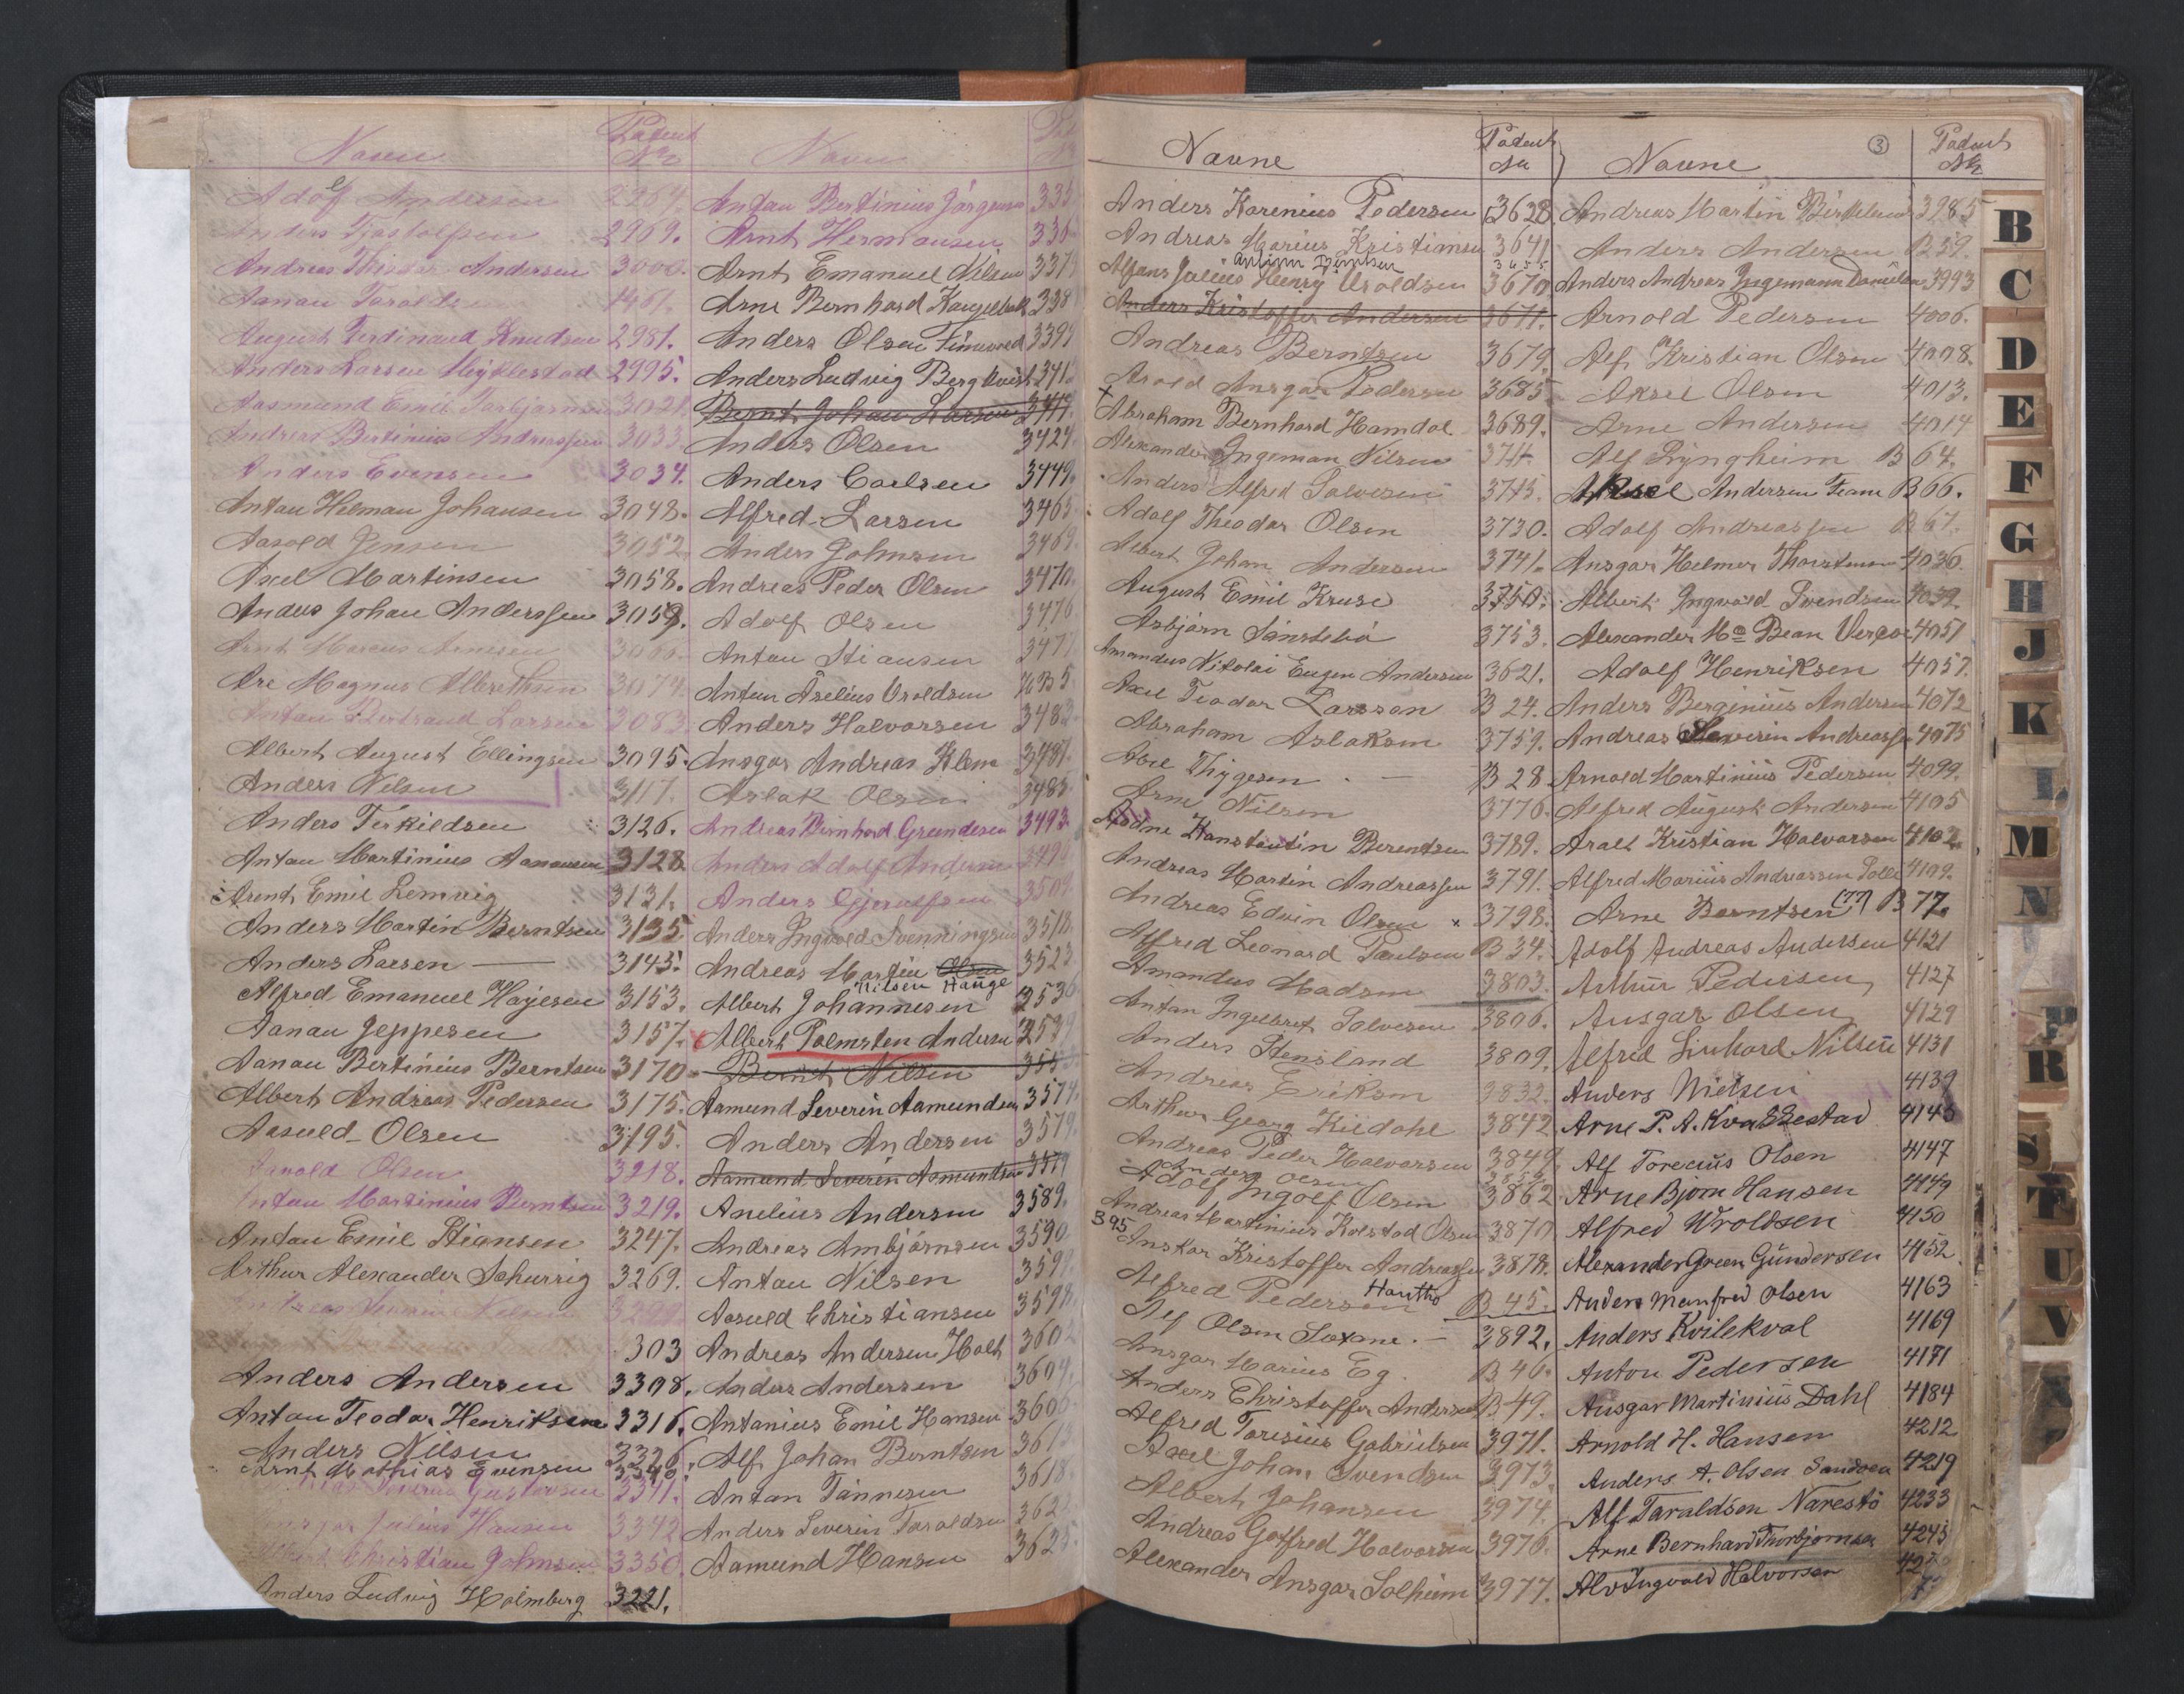 Navn
Patent No
Navn
Adolf Andersen 2964.
Anders Fjøstolfsen 2969.
Andreas Andersen 3000.
Aanon Taralds 1461.
August Ferdinand Knudsen 2981.
Anders Larsen Myklestad 2995.
Aasmund Emil Torbjørnsen 3021.
Andreas Bertinius Andreassen 3033.
Anders Evensen 3034.
Anton Helman Johansen 3048.
Aasold Jensen 3052.
Axel Martinsen 3058.
Anders Johan Anderssen 3059.
Arnt Marcus Arnesen 3066.
Are Magnus Albrethsen 3074.
Anton Bertrand Larsen 3083.
Albert August Ellingsen 3095.
Anders Nilsen 3117.
Anders Terkildsen 3126.
Anton Martinius Aanonsen 3128
Arent Emil Lemvig 3131.
Anders Martin Berntsen 3135
Anders Larsen 3145.
Alfred Emanuel Højesen 3153.
Aanon Jeppesen 3157.
Aanon Bertinius Berntsen 3170
Albert Andreas Pedersen 3175.
Aasuld Olsen 3195.
Aanold Olsen 3218.
Anton Martinius Berntsen 3219.
Anton Emil Stiansen 3247.
Arthur Alexander Schurrig 3269.
303
Anders Andersen 3308.
Anton Teodor Henriksen 3316.
Anders Nilsen 3326.
Arnt Mathias Evensen 3340.
Severin Gustavsen 3341.
Julius Hansen 3342
Christian Johnsen 3350.
Anders Ludvig Holmberg 3221.
Anton Bertinius Jørgensen 335
Arnt Hermansen 336
Arnt Emanuel Nilsen 337
Arne Bernhard Kougebakk 338
Anders Olsen Finsvoed 339
Anders Ludvig Bergkvist 341
Bernt Johan Larsen 3417.
Anders Olsen 3424
Anders Carlsen 3449.
Alfred Larsen 3465
Anders Johnsen 3469.
Andreas Peder Olsen 3470.
Adolf Olsen 3476
Anton Stiansen 347
Anton Axelius Vroldsen
Anders Halvorsen 348
Ansgar Andreas Klem 3481.
Aslak Olsen 3485
Andreas Bernhard Grundesen 3493
Anders Adolf Andersen 349
Anders Gjerulfsen 3509.
Anders Ingvold Svenningsen 3518.
Andreas Martin Olsen 352
Nilsen Hauge
Albert Johannesen 3536
Albert Palmsten Andersen 3539
Bernt Nilsen 355
Aamund Severin Aamundsen 3574.
Anders Andersen 3579.
Aamund Severin Aamundsen 3579
Anelius Andersen 3589.
Andreas Ambjørnsen 3590
Anton Nilsen 359
Aasuld Christiansen 3598
Andreas Andersen Holt 3602
Anders Andersen 3604.
Antonius Emil Hansen 3606
Alf Johan Berntsen 361
Anton Tønnesen 3618.
Anders Severin Taraldsen 362
Aamund Hansen 3625.
Navne
Patent No
Navne
3
Patent No
Anders Karenius Pedersen 3628
Andreas Marius Kristiansen 3641
Anton Berntsen 3655
Alfons Julius Henry Vroldsen 3670
Anders Kristoffer Andersen 3671.
Andreas Berntsen 3679.
Arold Ansgar Pedersen 3685
Abraham Bernhard Hamdal 3689.
Alexander Ingeman Nilsen 3711.
Anders Alfred Salvesen 3715.
Adolf Theodor Olsen 3730.
Albert Johan Andersen 3741.
August Emil Kruse 3750.
Asbjørn Sønstebø 3753.
Amandus Nikolai Eugen Andersen 3621.
Axel Teodor Larsson B 24.
Abraham Aslaksen 3759.
Abel Thygesen B 28
Arne Nilsen 3776.
Aadne Konstantin Berentsen 3789.
Andreas Martin Andreassen 3791.
Andreas Edvin Olsen 3798.
Alfred Leonard Paulsen B 34.
Amandus Madsen 3803.
Anton Ingebret Salvesen 3806.
Anders Stensland 3809.
Andreas Eriksen 3832.
Arthur Georg Kildahl 3842
Andreas Peder Halvorsen 3849.
Anders Olsen
Adolf Ingolf Olsen 3862
Andreas Martinius Kolstad Olsen 3870
395
Anskar Kristoffer Andreassen 3878.
Alfred Pedersen Hautho B 45.
Alf Olsen Loxane 3892.
Ansgar Marius Eg. B 46.
Anders Christoffer Andersen B 49.
Alfred Torisius Gabrielsen 3971.
Axel Johan Svendsen 3973
Albert Johansen 3974.
Andreas Gotfred Halvorsen 3976.
Alexander Ansgar Solheim 3977.
Andreas Martin Birkeland 3985
Anders Andersen B 59.
Anders Andreas Ingemann Danielsen 3993
Arnold Pedersen 4006.
Alf Kristian Olsen 4008.
Aksel Olsen 4013.
Arne Andersen 4014
Alf Lyngheim B 64.
Aksel Andersen Feane B 66.
Adolf Andreassen B 67.
Ansgar Helmer Thorstensen 4036.
Albert Ingvald Svendsen 4039.
Alexander Mc Bean Verçoe 4051
Adolf Henriksen 4057.
Anders Berginius Andersen 4072
Andreas Severin Andreassen 4075
Arnold Martinius Pedersen 4099.
Alfred August Andersen 4105
Aralt Kristian Halvorsen 4102.
Alfred Marius Andreassen Salle 4109.
Arne Berntsen (77) B 77.
Adolf Andreas Andersen 4121
Arthur Pedersen 4127
Ansgar Olsen 4129
Alfred Linhard Nilsen 4131
Anders Nielsen 4139
Arne P. A. Kvastestad 4145
Alf Torecius Olsen 4147
Arne Bjørn Hansen 4149
Alfred Wroldsen 4150
Alexander Green Gundersen 4152
Anders Manfred Olsen 4163
Anders Kvilekval 4169
Anton Pedersen 4171
Ansgar Martinius Dahl 4184
Arnold H. Hansen 4212
Anders A. Olsen Sandøen 4219
Alf Taraldsen Narestø 4233
Arne Bernhard Thorbjørnsen 4245
Alv Ingvald Halvorsen
B
C
D
E
F
G
H
J
K
L
M
N
P
R
S
T
U
V